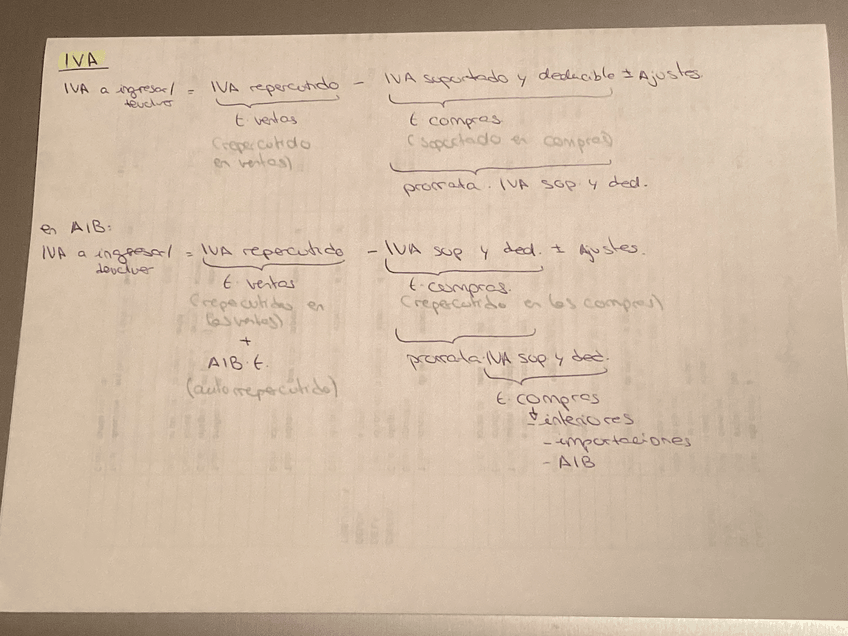 IVA
IVA a ingresar/ = IVA repercutido - IVA soportado y deducible ± Ajustes
devolver
t · ventas
t compras
(repercutido
en ventas)
(soportado en compras)
prorrata · IVA sop y ded.
en AIB:
IVA a ingresar/ = IVA repercutido - IVA sop y ded. ± Ajustes.
devolver
t · ventas
t · compras.
(repercutidas en
las ventas)
(repercutido en las compras)
+
AIB · t.
(autorrepercutido)
prorrata · IVA sop y ded.
t · compras
interiores
- importaciones
- AIB